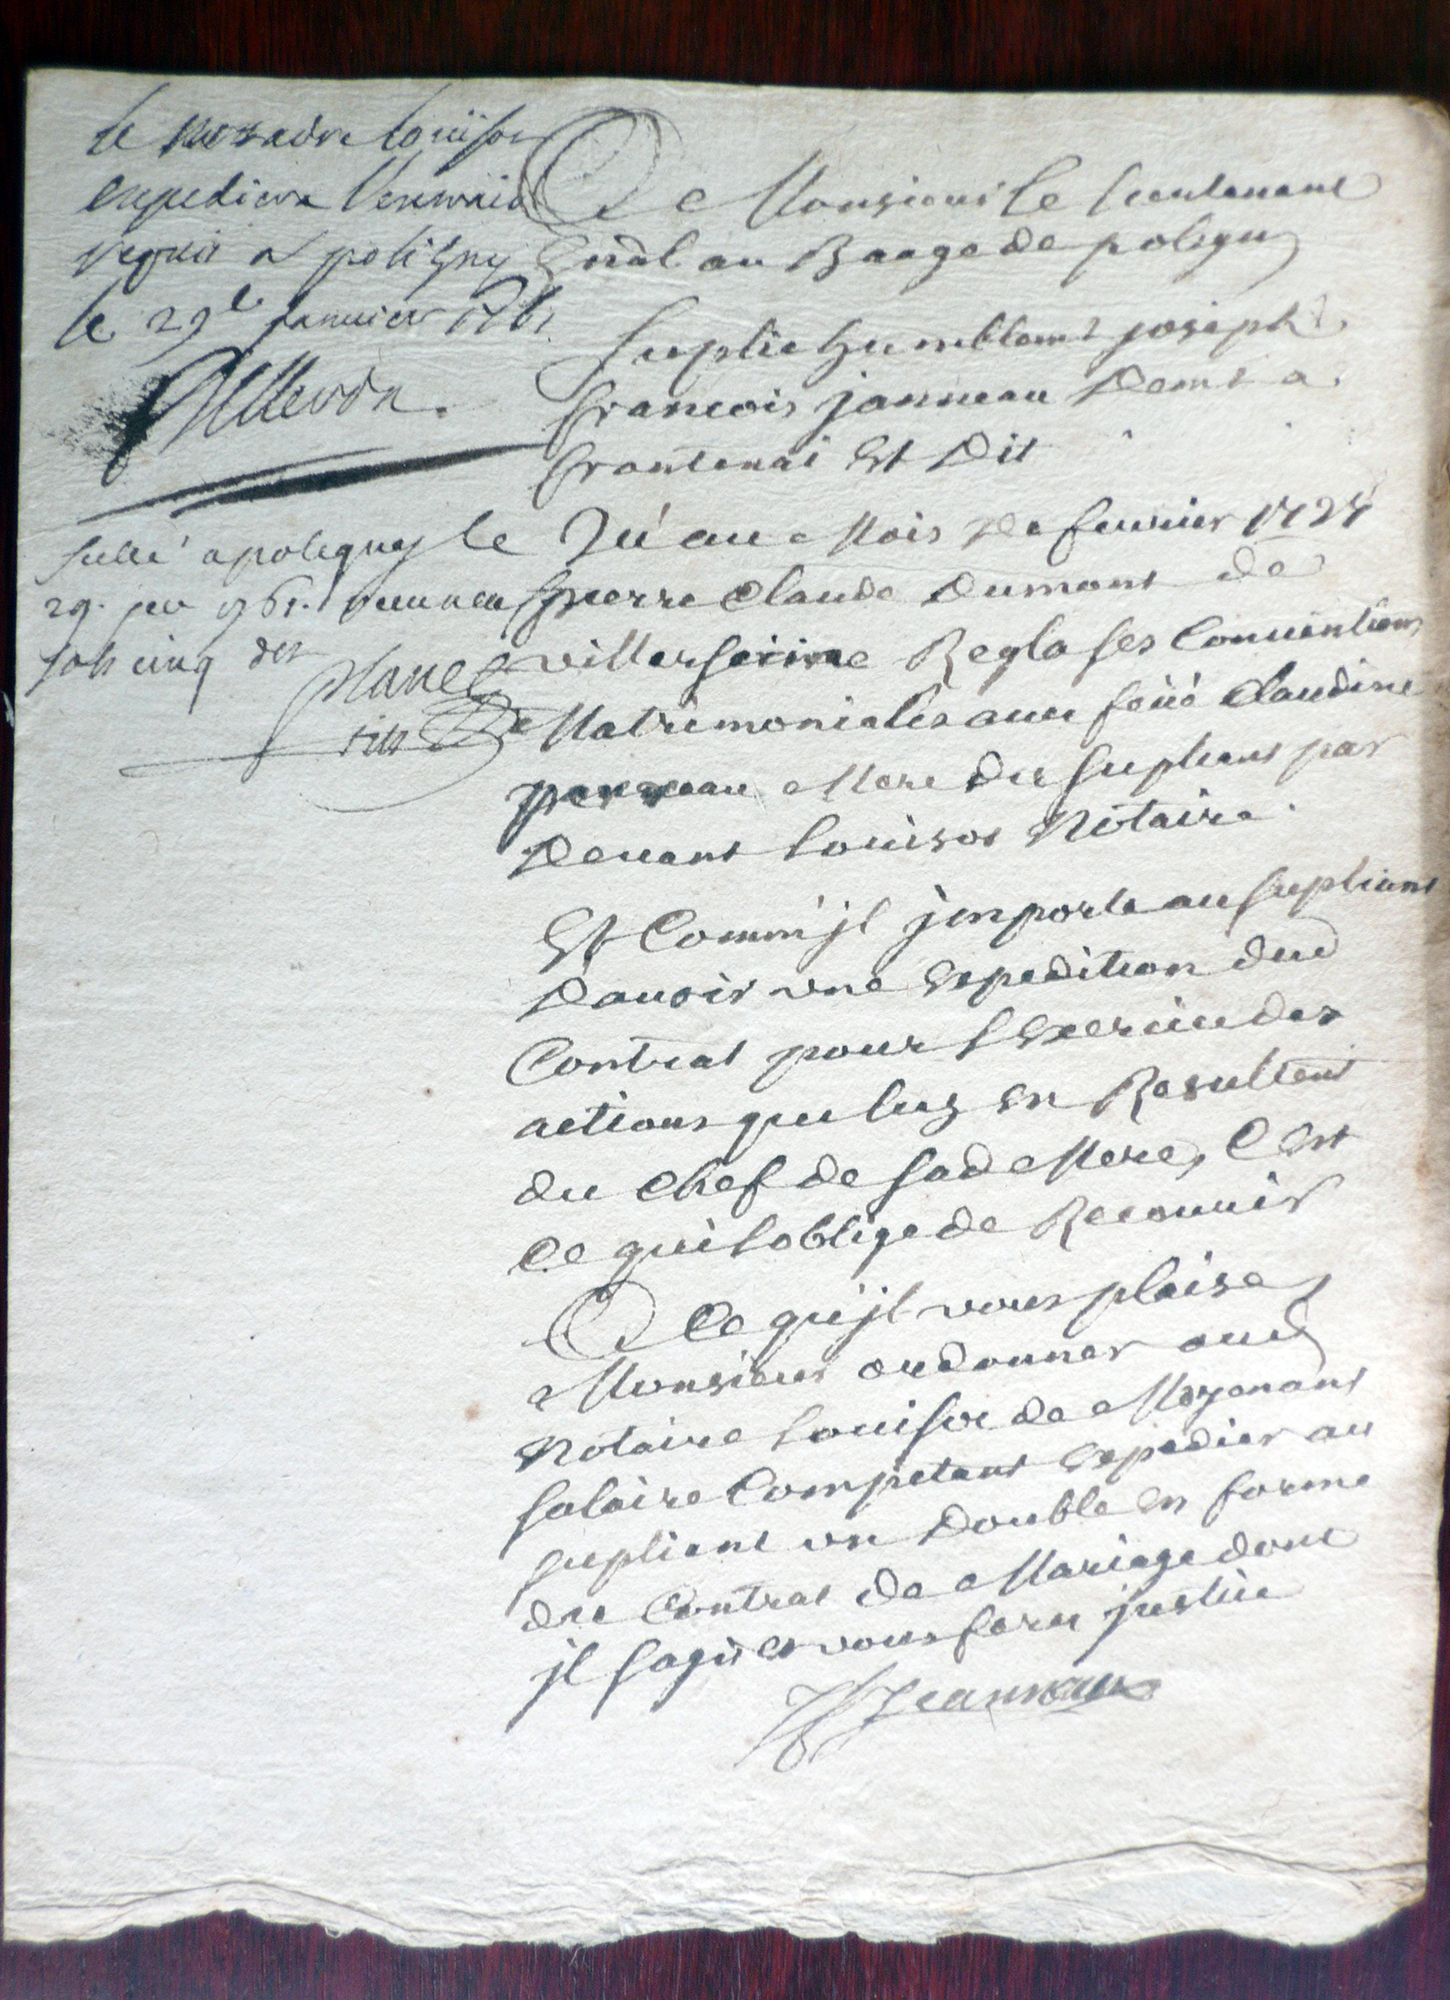 le notaire Louisot
expediera l'enoncé
requis a poligny
le 29e janvier 1761
scellé a poligny le
29. jer 1761. Receu
sols cinq drs
A Monsieur le Lieutenant
Gnâl au Baage de poligny
Suplie humblemt joseph
francois janneau Demt a
frontenai Et Dit
Qu'au Mois De feuurier 1724
pierre Claude Dumont de
villerserine Regla ses Conuentions
Matrimoniales auec feüe Claudine
perreau Mere du supliant par
Deuant Louisot Notaire
Et Comm'jl jmporte au supliant
Dauoir une Expedition dud
Contrat pour l Exercice des
actions qui luy en Resultent
du Chef de sad Mere, C'est
Ce qui loblige de Recourir
A Ce qu'jl vous plaise,
Monsieur ordonner aud
Notaire Louisot de Moyenant
salaire Competant Expedier au
supliant un Double en forme
du Contrat de Mariage dont
jl sagit et vous ferez justice
Jeanneau